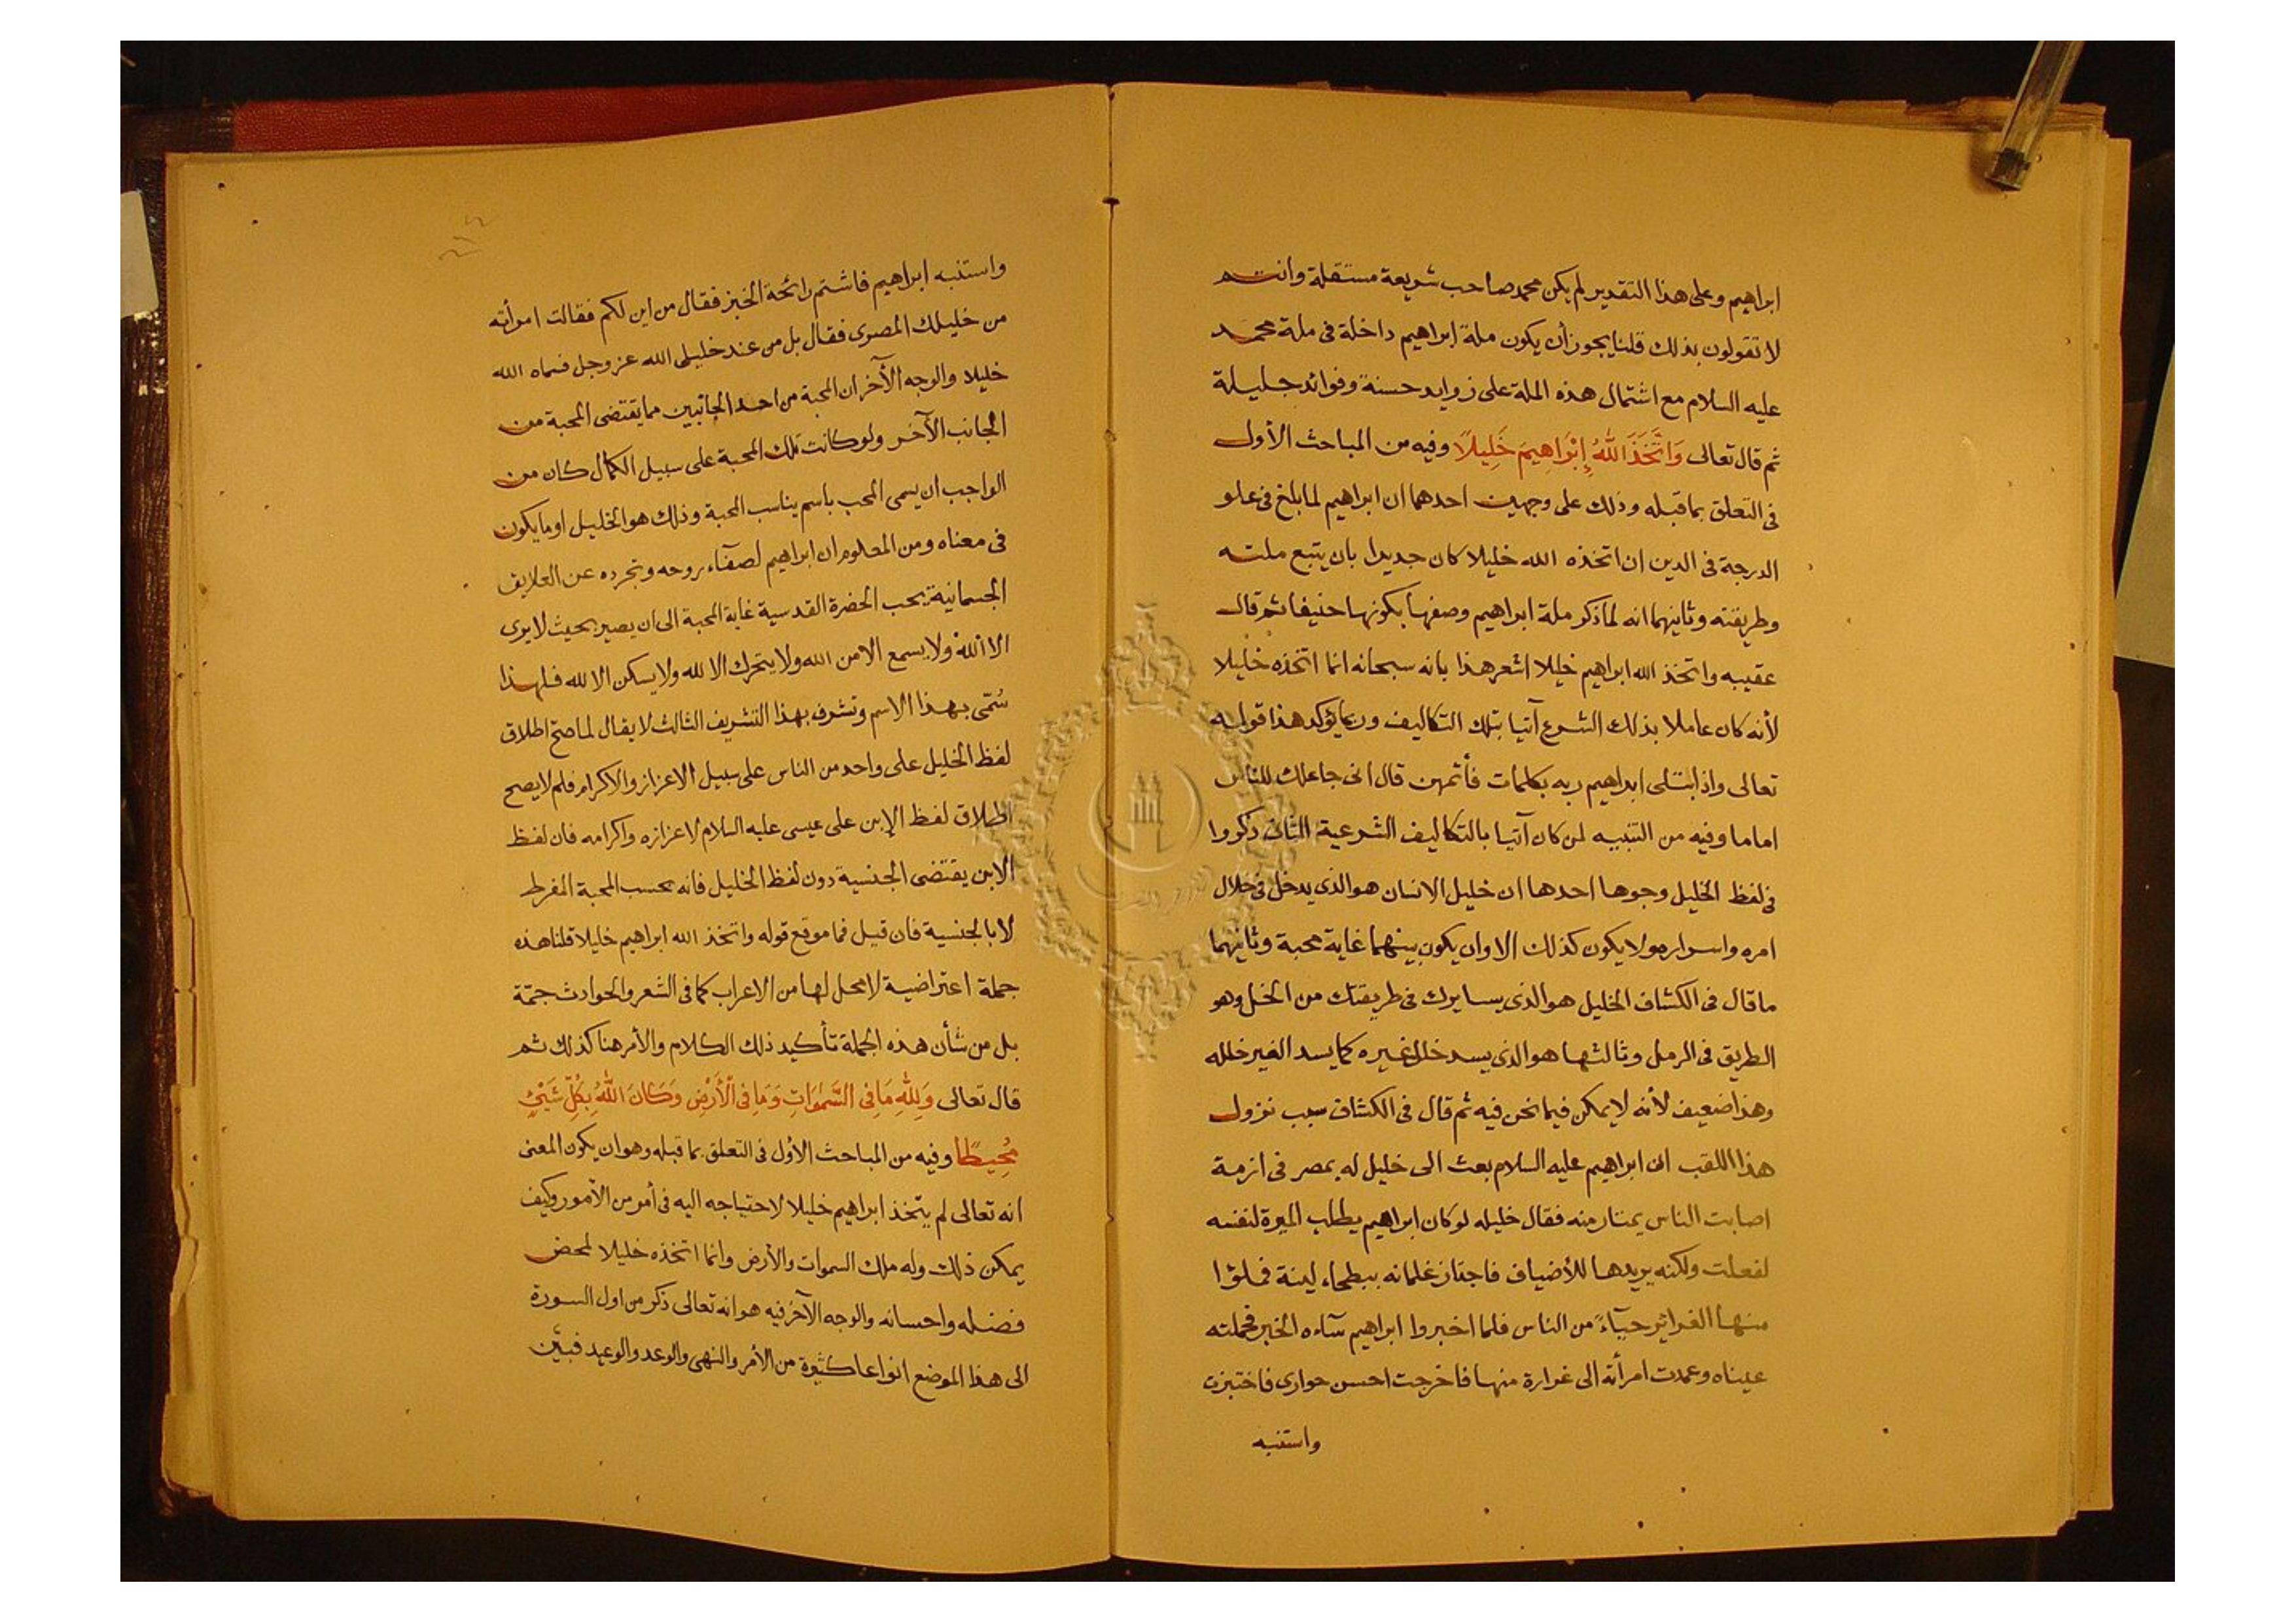 ابراهيم وعلى هذا التقدير لم يكن محمد صاحب شريعة مستقلة وانتم
لا تقولون بذلك قلنا يجوز أن يكون ملة إبراهيم داخلة فى ملة محمد
عليه السلام مع اشتمال هذه الملة على زوايد حسنة وفوائد جليلة
ثم قال تعالى وَاتَّخَذَ اللهُ إِبْرَاهِيمَ خَلِيلًا وفيه من المباحث الأول
فى التعلق بما قبله وذلك على وجهين احدهما ان ابراهيم لما بلغ فى علو
الدرجة فى الدين ان اتخذه الله خليلا كان جديرا بان يتبع ملته
وطريقته وثانيهما انه لما ذكر ملة ابراهيم وصفها بكونها حنيفا ثم قال
عقيبه واتخذ الله ابراهيم خليلا اشعر هذا بانه سبحانه انما اتخذه خليلا
لأنه كان عاملا بذلك الشرع آتيا بتلك التكاليف ومما يؤكد هذا قوله
تعالى واذ ابتلى ابراهيم ربه بكلمات فأتمهن قال انى جاعلك للناس
اماما وفيه من التنبيه لمن كان آتيا بالتكاليف الشرعية الثانى ذكروا
فى لفظ الخليل وجوها احدها ان خليل الانسان هو الذى يدخل فى خلال
امره واسراره ولا يكون كذلك الا وان يكون بينهما غاية محبة وثانيهما
ما قال فى الكشاف الخليل هو الذى يسايرك فى طريقتك من الخل وهو
الطريق فى الرمل وثالثها هو الذى يسد خلل غيره كما يسد الغير خلله
وهذا ضعيف لأنه لا يمكن فيما نحن فيه ثم قال فى الكشاف سبب نزول
هذا اللقب ان ابراهيم عليه السلام بعث الى خليل له بمصر فى ازمة
اصابت الناس يمتار منه فقال خليله لو كان ابراهيم يطلب الميرة لنفسه
لفعلت ولكنه يريدها للأضياف فاجتاز غلمانه ببطحاء لينة فملؤا
منها الغرائر حيآءً من الناس فلما اخبروا ابراهيم سآءه الخبر فحملته
عيناه وعمدت امرأته الى غرارة منها فاخرجت احسن حوارى فاختبزت
واستنبه
واستنبه ابراهيم فاشتم رائحة الخبز فقال من اين لكم فقالت امرأته
من خليلك المصرى فقال بل من عند خليلى الله عز وجل فسماه الله
خليلا والوجه الآخر ان المحبة من احد الجانبين مما يقتضى المحبة من
الجانب الآخر ولو كانت تلك المحبة على سبيل الكمال كان من
الواجب ان يسمى المحب باسم يناسب المحبة وذلك هو الخليل او ما يكون
فى معناه ومن المعلوم ان ابراهيم لصفآء روحه وتجرده عن العلايق
الجسمانية يحب الحضرة القدسية غاية المحبة الى ان يصير بحيث لا يرى
الا الله ولا يسمع الا من الله ولا يتحرك الا لله ولا يسكن الا لله فلهذا
سُمّى بهذا الاسم وتشرف بهذا التشريف الثالث لا يقال لما صح اطلاق
لفظ الخليل على واحد من الناس على سبيل الاعزاز والاكرام فلم لا يصح
اطلاق لفظ الإبن على عيسى عليه السلام لاعزازه واكرامه فان لفظ
الابن يقتضى الجنسية دون لفظ الخليل فانه بحسب المحبة المفرط
لا بالجنسية فان قيل فما موقع قوله واتخذ الله ابراهيم خليلا قلنا هذه
جملة اعتراضية لا محل لها من الاعراب كما فى الشعر والحوادث جمّة
بل من شأن هذه الجملة تأكيد ذلك الكلام والأمر هنا كذلك ثم
قال تعالى وَلِلّهِ مَا فِى السَّمٰوَاتِ وَمَا فِى الْأَرْضِ وَكَانَ اللهُ بِكُلِّ شَيْئٍ
مُحِيطًا وفيه من المباحث الأول فى التعلق بما قبله وهو ان يكون المعنى
انه تعالى لم يتّخذ ابراهيم خليلا لاحتياجه اليه فى أمر من الأمور وكيف
يمكن ذلك وله ملك السموات والأرض وانما اتخذه خليلا لمحض
فضله واحسانه والوجه الآخر فيه هو انه تعالى ذكر من اول السورة
الى هذا الموضع انواعا كثيرة من الأمر والنهى والوعد والوعيد فبيّن